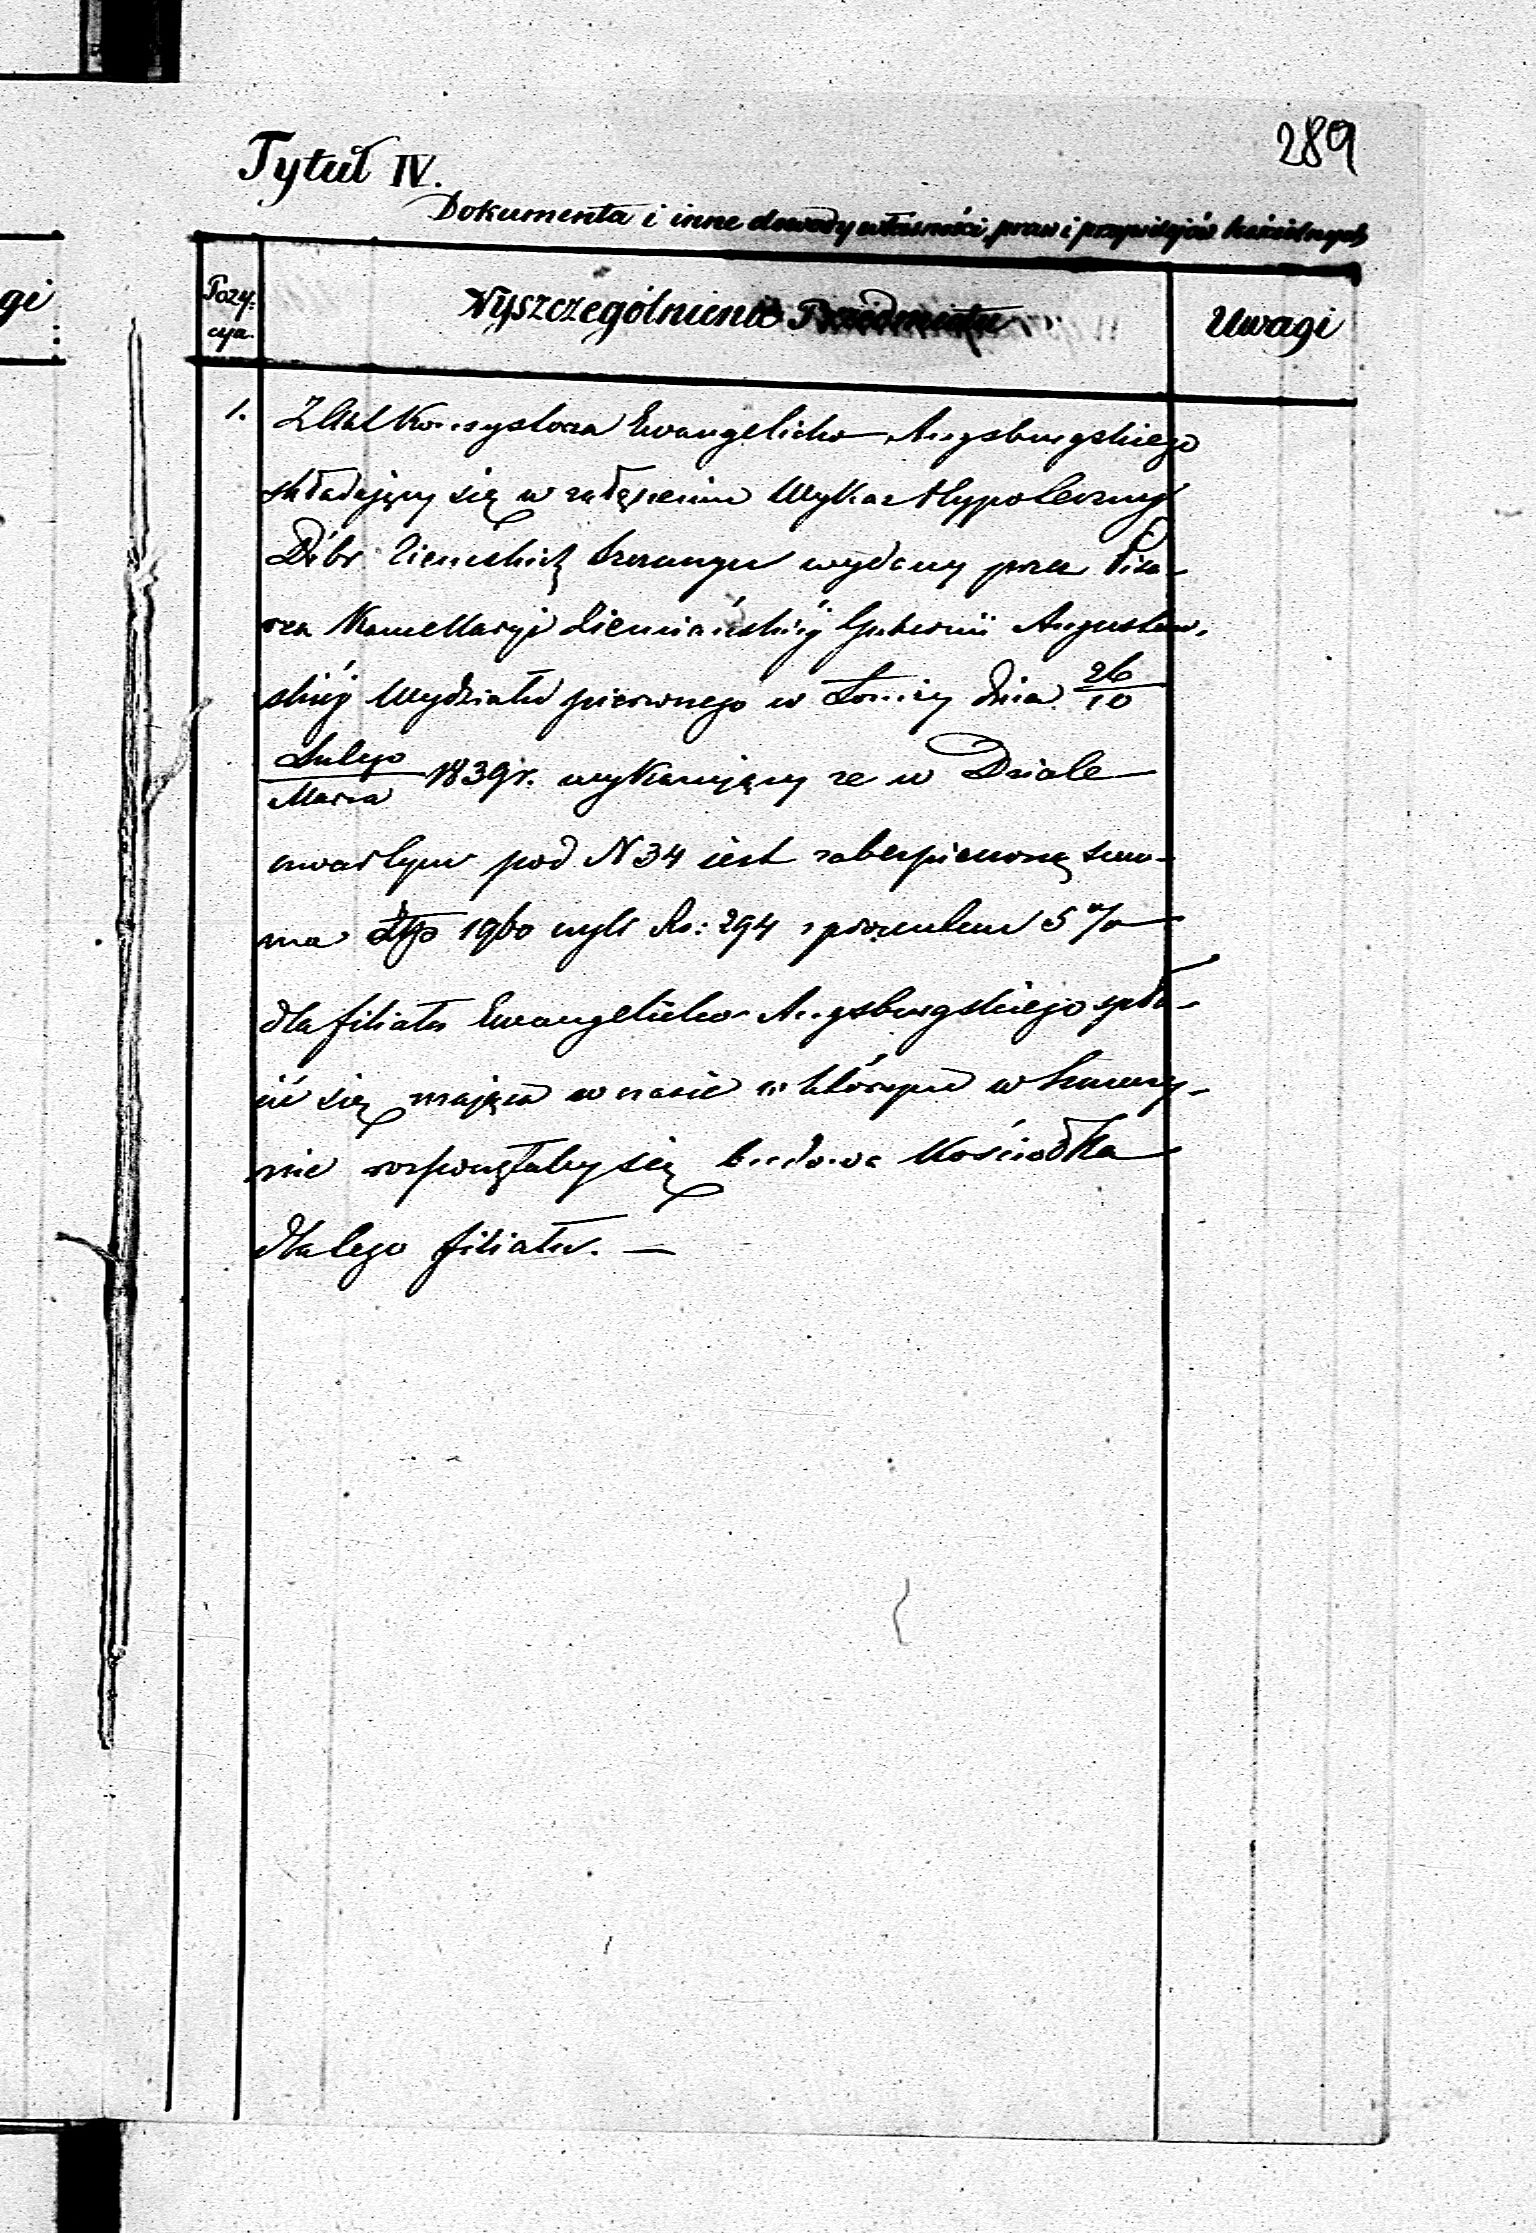 289
Tytuł IV.
Dokumenta i inne dowody własności, praw i przywilejów kościelnych
gi
Pozy: Wyszczególnienie Przedmiotu Uwagi
cya.
1. Z Akt Konsystorza Ewangelicko Augsburgskiego
składający się w załączeniu Wykaz Hypoteczny
Dóbr Ziemskich wydany przez Pisa-
rza Kancellaryi Ziemiańskiéj Gubernii Augustow-
skiéj Wydziału pierwszego w Łomży dnia 26/10
Lutego/Marca 1839 r. wykazujący ze w Dziale
czwartym pod N 34 iest zabespieczoną sum-
ma Złp 1960 czyli Rs: 294 z procentem 5 %
dla filiału Ewangelicko Augsburgskiego spła-
cić się mająca w czasie w którym w
nie rozpoczętaby się budowa Kościołka
dla tego filiału. —